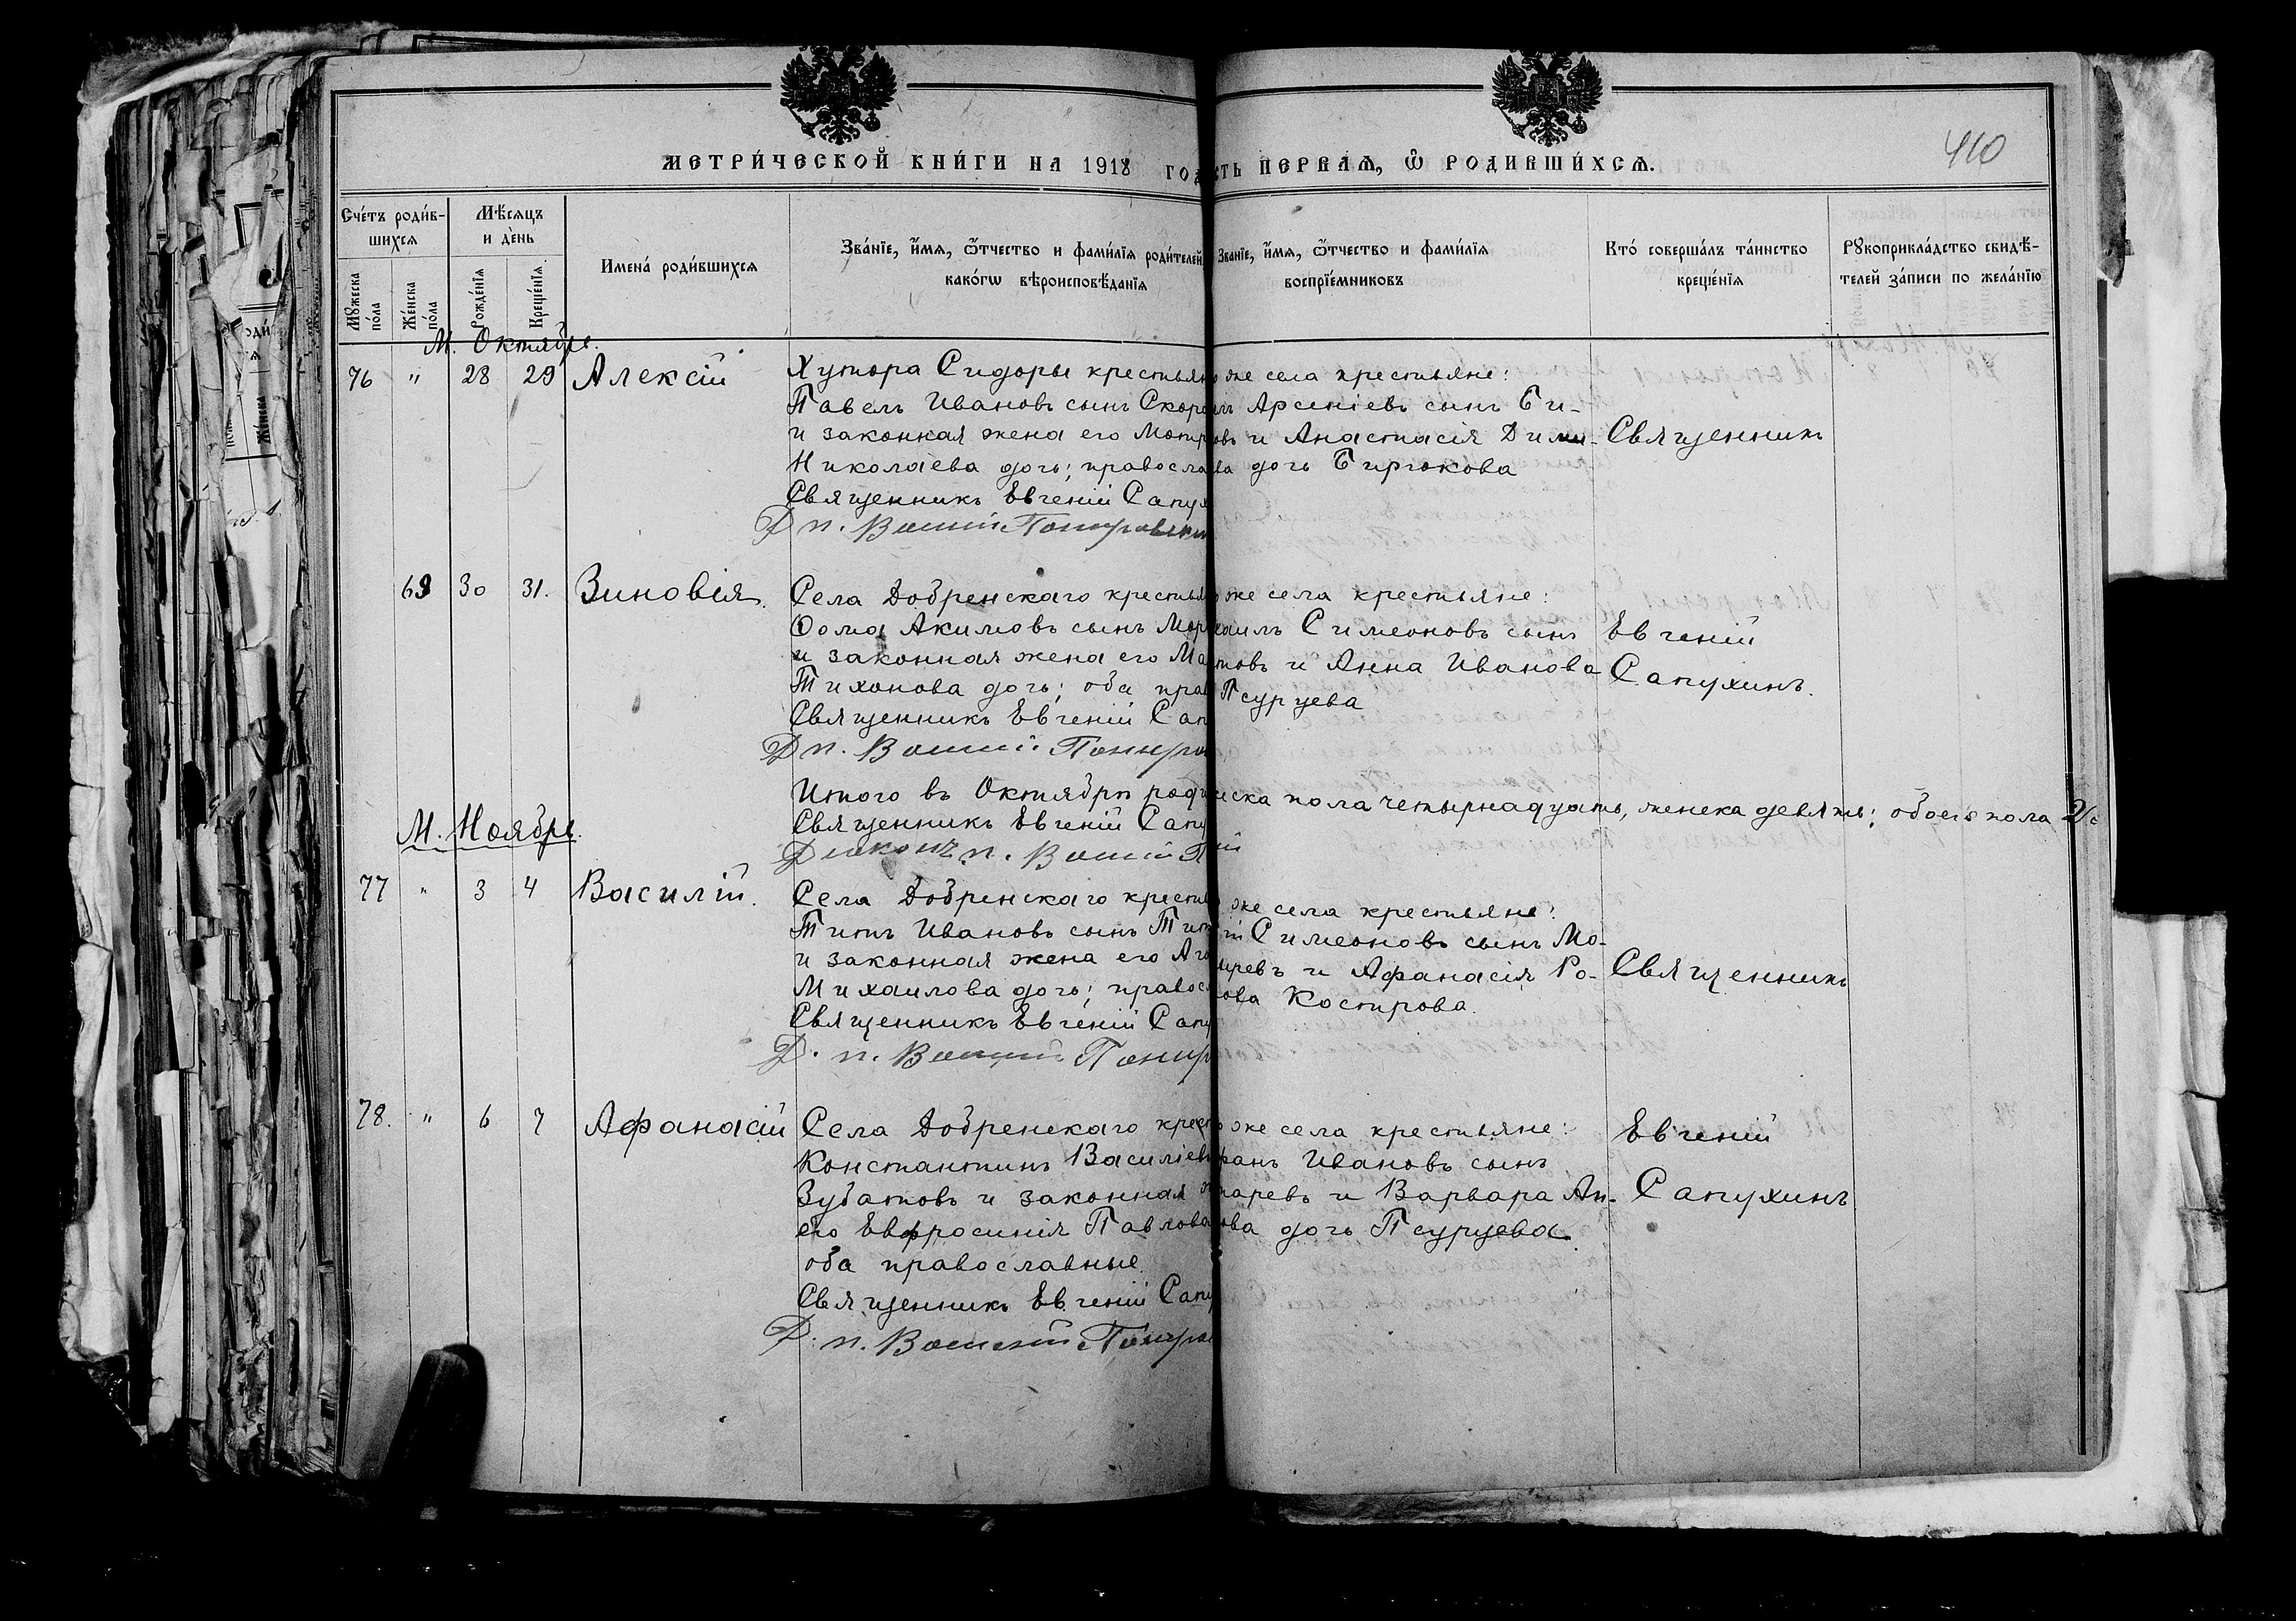 МЕТРИ́ЧЕСКОЙ КНИ́ГИ НА 1918 ГОД
СТЬ ПЕРВАѦ, Ѡ҃ РОДИВШИ́ХСѦ.
410
Сче́тъ роди́в-
шихсѧ
Мѣ́сяцъ
и де́нь
Имена́ роди́вшихсѧ
Зва́нїе, и́мѧ, ѻ́тчество и фами́лїѧ роди́телей
како́гѡ вѣроисповѣ́данїѧ
Зва́нїе, и́мѧ, ѻ́тчество и фами́лїѧ
воспрїе́мниковъ
Кто́ соверша́лъ та́инство
креще́нїѧ
Рꙋкоприкла́дство свидѣ́-
телей за́писи по жела́нїю
Мꙋ́жеска
по́ла
Же́нска
по́ла
Рожде́нїѧ
Креще́нїѧ.
М. Октябрь.
76 " 28 29 Алексій
Хутора Сидоры крестьян
Павелъ Ивановъ сынъ Скор
и законная жена его Матр
Николаева дочь; правосла
Священникъ Евгеній Сапух
Д п.
о же села крестьяне:
илъ Арсеніевъ сынъ Би-
овъ и Анастасія Дими-
ва дочь Бирюкова
Священникъ
69 30 31. Зиновія.
Села Добренскаго крестья
Ѳома Акимовъ сынъ Мор
и законная жена его Ма
Тихонова дочь; оба прав
Священникъ Евгеній Сап
Д п.
о же села крестьяне:
хаилъ Симеоновъ сынъ
товъ и Анна Иванова
Псурцева
Евгеній
Сапухинъ.
Итого въ Октябрѣ роди
ска пола четырнадцать, женска девять; обоего пола 2
Священникъ Евгеній Сапу
Діаконъ п.
ій
М. Ноябрь.
77 " 3 4 Василій.
Села Добренскаго кресть
Титъ Ивановъ сынъ Тит
и законная жена его Ага
Михаилова дочь; правос
Священникъ Евгеній Сапу
Д. п.
же села крестьяне:
ій Симеоновъ сынъ Мо-
ыревъ и Афанасія Ро-
нова Кострова.
Священникъ
78. " 6 7 Афанасій
Села Добренскаго крест
Константинъ Василіев
Зубатовъ и законная ж
его Евфросинія Павлова
оба православные.
Священникъ Евгеній Сапу
Д. п.
о же села крестьяне:
фанъ Ивановъ сынъ
таревъ и Варвара Ан-
ова дочь Псурцева.
Евгеній
Сапухинъ